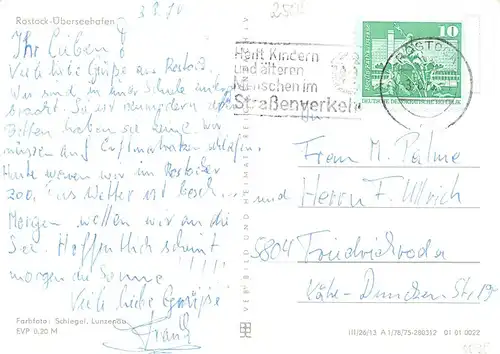 Rostock-Überseehafen
3.8.80
Ihr Lieben!
Viele liebe Grüße aus Rostock.
Wir sind in einer Schule unterge
bracht. So ist
Betten haben sie keine. Wir
müssen auf Luftmatratzen schlafen.
Heute waren wir im Rostocker
Zoo, das Wetter ist
Morgen wollen wir an die
See. Hoffentlich scheint
morgen die Sonne
!!!!
Viele liebe Grüße
Frank
Farbfoto: Schlegel, Lunzenau
EVP 0,20 M
VERBILD UND HEIMAT
Helft Kindern
und älteren
Menschen im
Straßenverkehr
10
DEUTSCHE DEMOKRATISCHE REPUBLIK
ROSTOCK
An
Frau M. Palme
und Herrn F. Ullrich
5804 Friedrichroda
Käte-Duncker-Str. 19
III/26/13 A 1/78/75-280312 01 01 0022